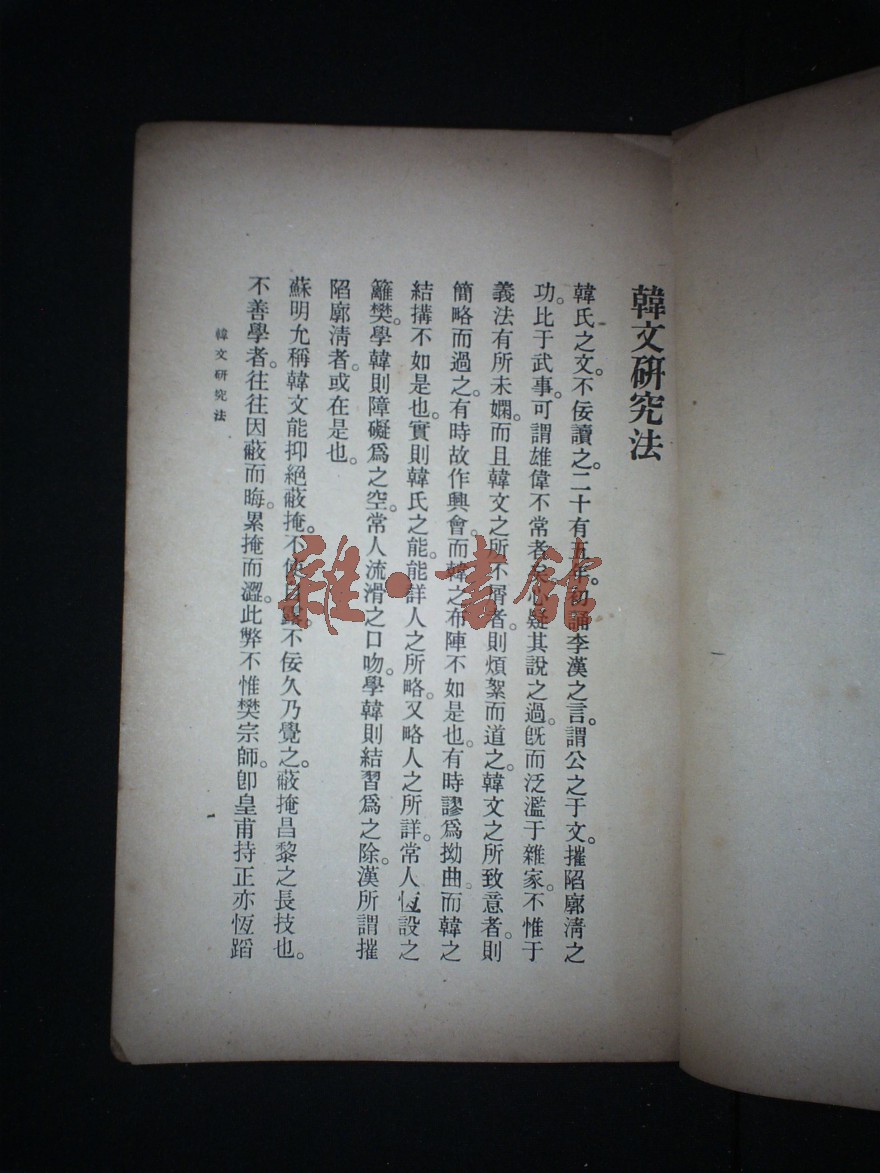 韓文研究法
韓氏之文。不佞讀之。二十有五年。初誦李漢之言。謂公之于文。摧陷廓清之
功。比于武事。可謂雄偉不常者矣。心疑其說之過。旣而泛濫于雜家。不惟于
義法有所未嫻。而且韓文之所不屑者。則煩絮而道之。韓文之所致意者。則
簡略而過之。有時故作興會。而韓之布陣不如是也。有時謬爲拗曲。而韓之
結搆不如是也。實則韓氏之能。能詳人之所略。又略人之所詳。常人恆設之
籬樊。學韓則障礙爲之空。常人流滑之口吻。學韓則結習爲之除。漢所謂摧
陷廓淸者。或在是也。
蘇明允稱韓文能抑絕蔽掩。不使自露。不佞久乃覺之。蔽掩昌黎之長技也。
不善學者。往往因蔽而晦。累掩而澀。此弊不惟樊宗師。卽皇甫持正亦恆蹈
韓文研究法
雜·書館